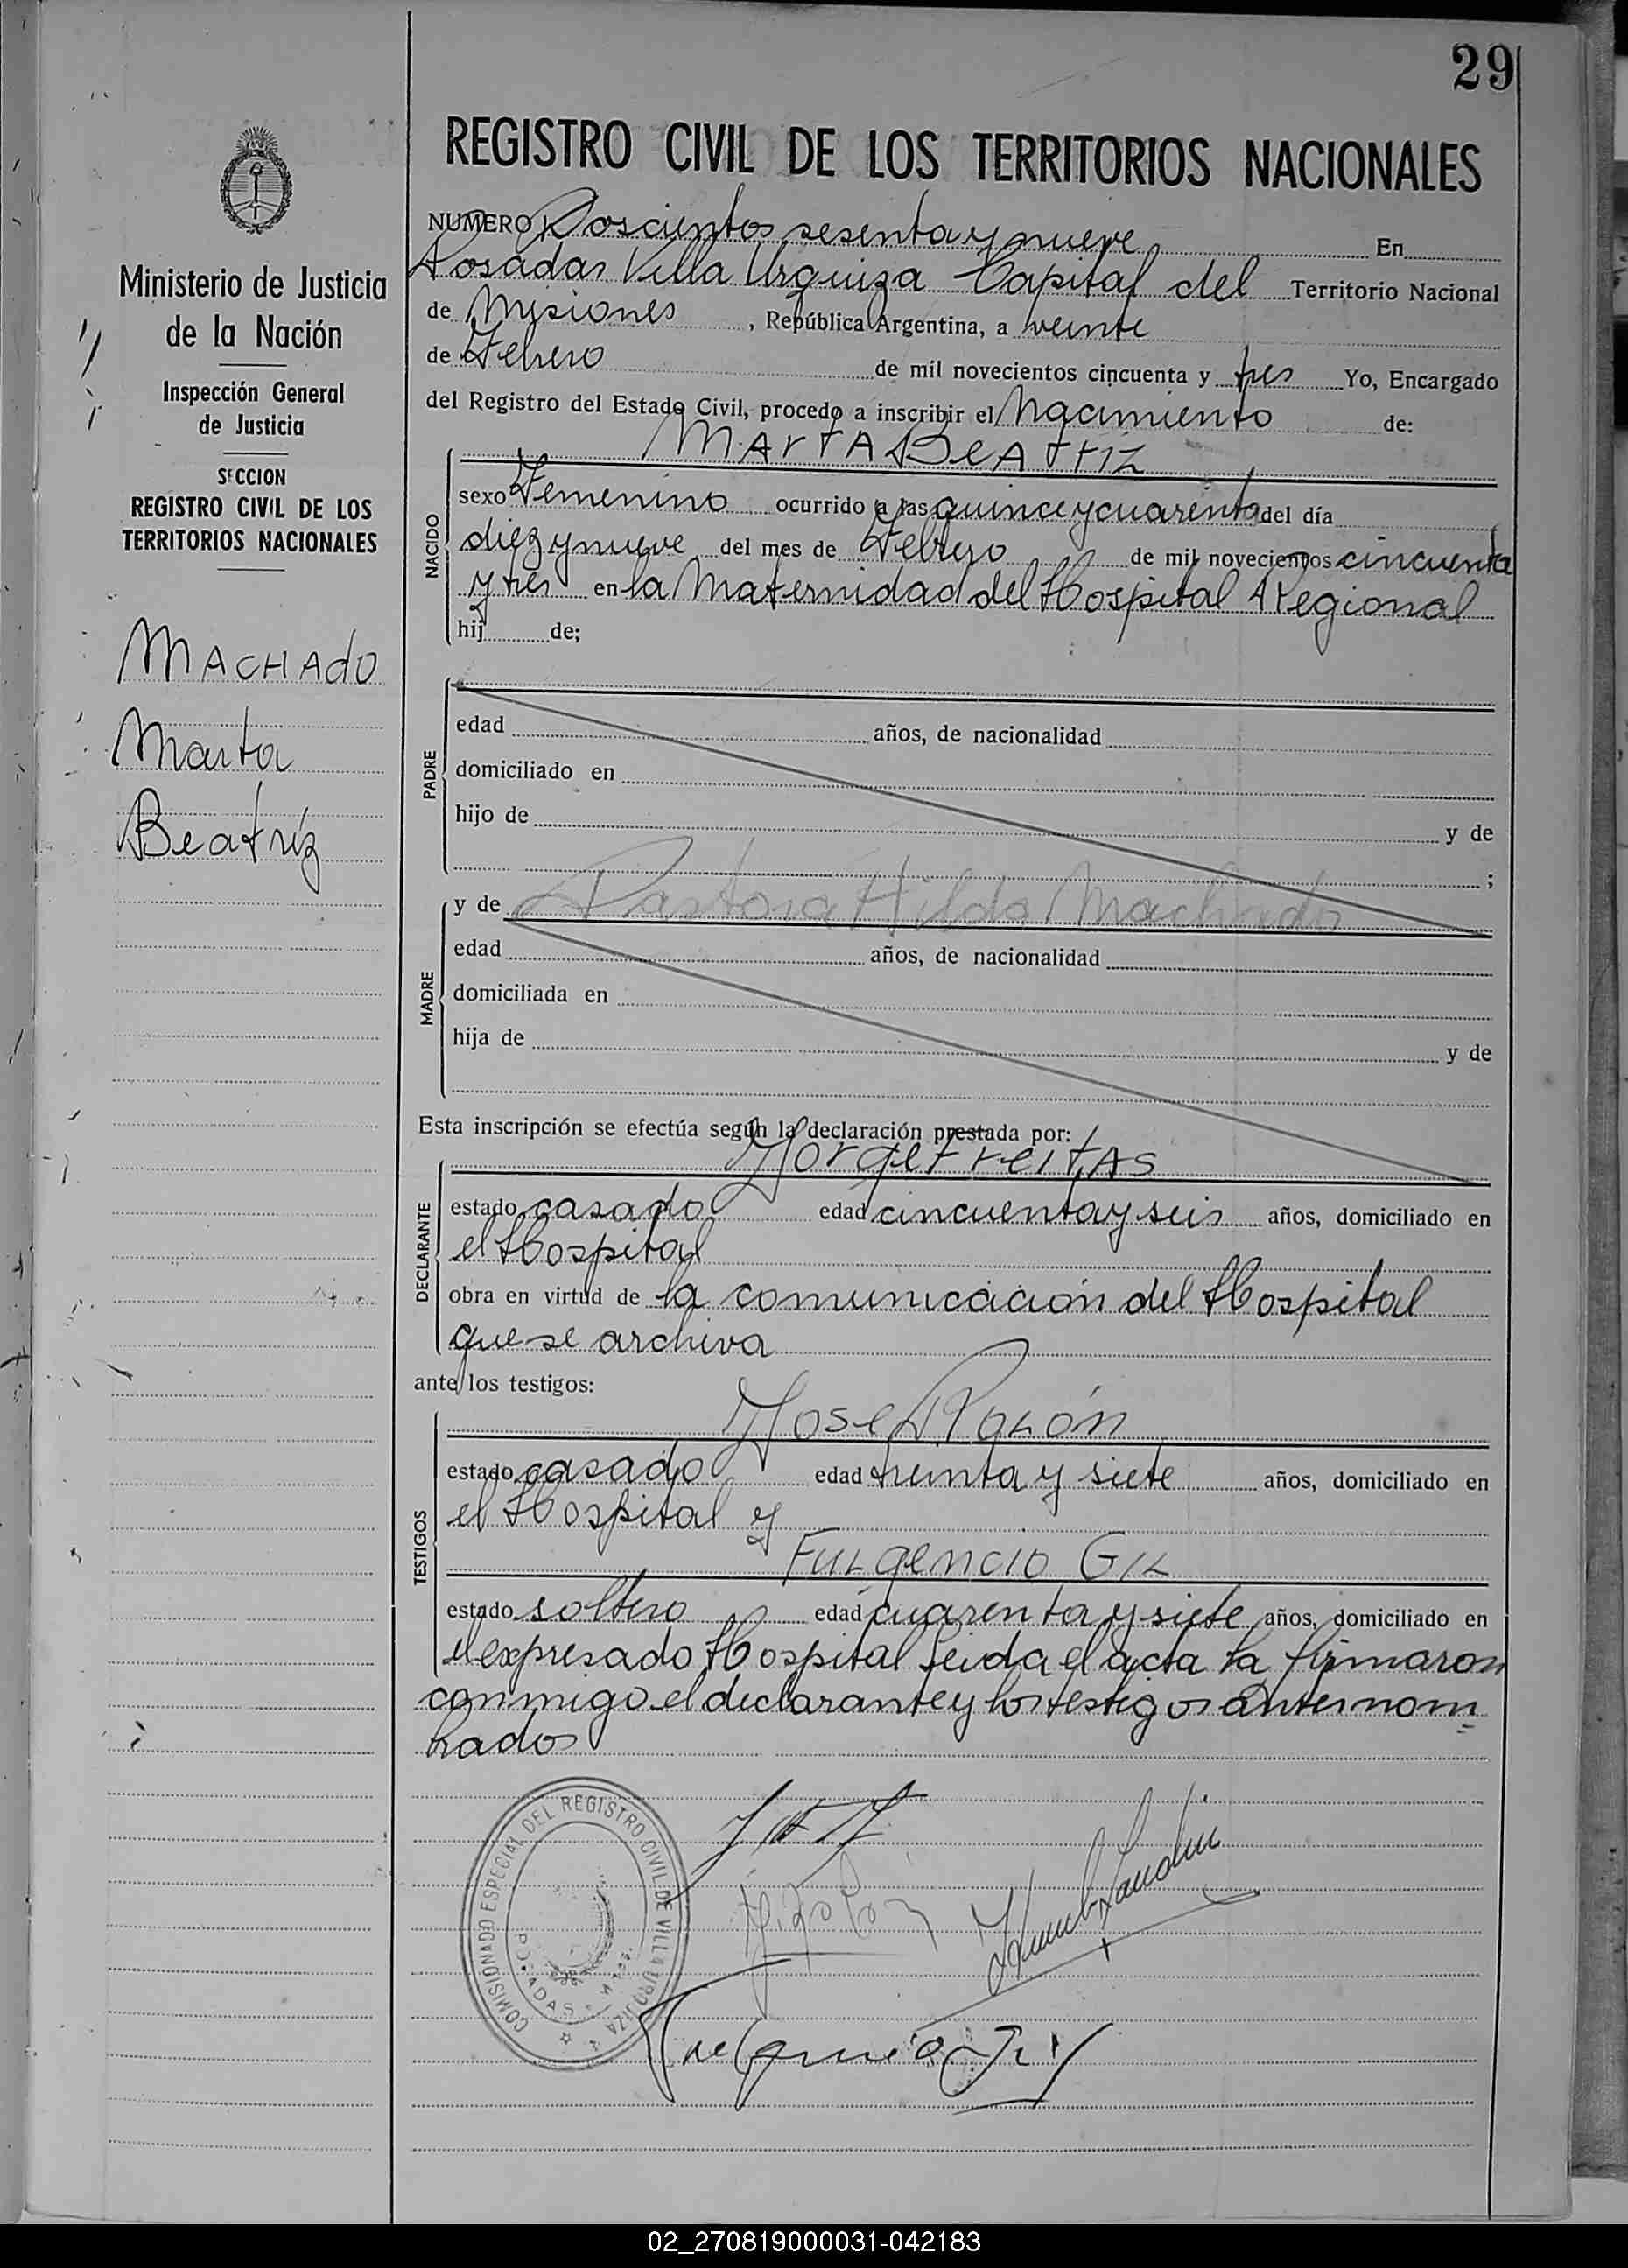 29
REGISTRO CIVIL DE LOS TERRITORIOS NACIONALES
Ministerio de Justicia
de la Nación
Inspección General
de Justicia
SECCION
REGISTRO CIVIL DE LOS
TERRITORIOS NACIONALES
MACHAdO
Marta
Beatríz
NUMERO Doscientos sesenta y nueve En
Posadas Villa Urquiza Capital del Territorio Nacional
de Misiones, República Argentina, a veinte
de Febrero de mil novecientos cincuenta y tres Yo, Encargado
del Registro del Estado Civil, procedo a inscribir el Nacimiento de:
MArtA BeAtriz
NACIDO
sexo Femenino ocurrido a las quince y cuarenta del día
diez y nueve del mes de Febrero de mil novecientos cincuenta
y tres en la Maternidad del Hospital Regional
hij de;
PADRE
edad años, de nacionalidad
domiciliado en
hijo de y de
;
MADRE
y de Pastora Hilda Machado
edad años, de nacionalidad
domiciliada en
hija de y de
Esta inscripción se efectúa según la declaración prestada por:
DECLARANTE
Jorge FreitAs
estado casado edad cincuenta y seis años, domiciliado en
el Hospital
obra en virtud de la comunicación del Hospital
que se archiva
ante los testigos:
TESTIGOS
José
estado casado edad treinta y siete años, domiciliado en
el Hospital y
Fulgencio Gil
estado soltero edad cuarenta y siete años, domiciliado en
el expresado Hospital Leida el acta la firmaron
conmigo el declarante y los testigos antes nom
brados
COMISIONADO ESPECIAL DEL REGISTRO CIVIL DE VILLA URQUIZA
POSADAS
Fulgencio Gil
02_270819000031-042183